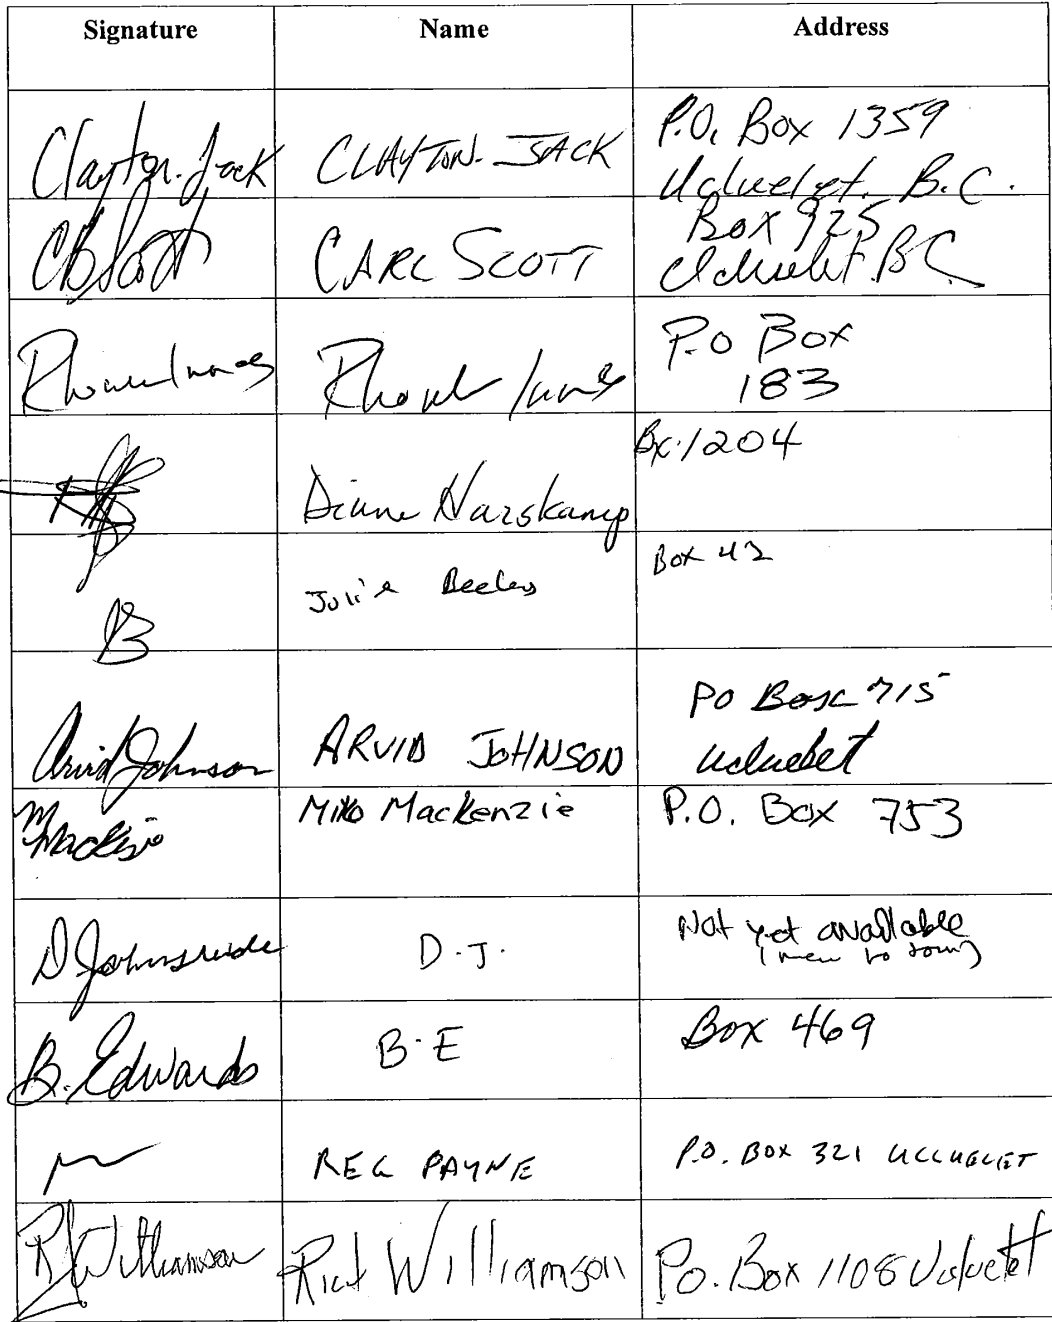 Signature Name Address
Clayton. Jack CLAYTON. JACK P.O. Box 1359
Ucluelet. B.C.
CBScott CARL SCOTT Box 925
Ucluelet BC
P.O Box
183
Diane Harskamp Bx. 1204
JB Julie Beeless Box 42
Arvid Johnson ARVID JOHNSON PO Box 715
Ucluelet
Mike Mackenzie P.O. Box 753
D.J. Not yet available
(new to town)
B. Edwards B.E Box 469
REG PAYNE P.O. BOX 321 UCLUELET
R Williamson Rick Williamson P.O. Box 1108 Ucluelet